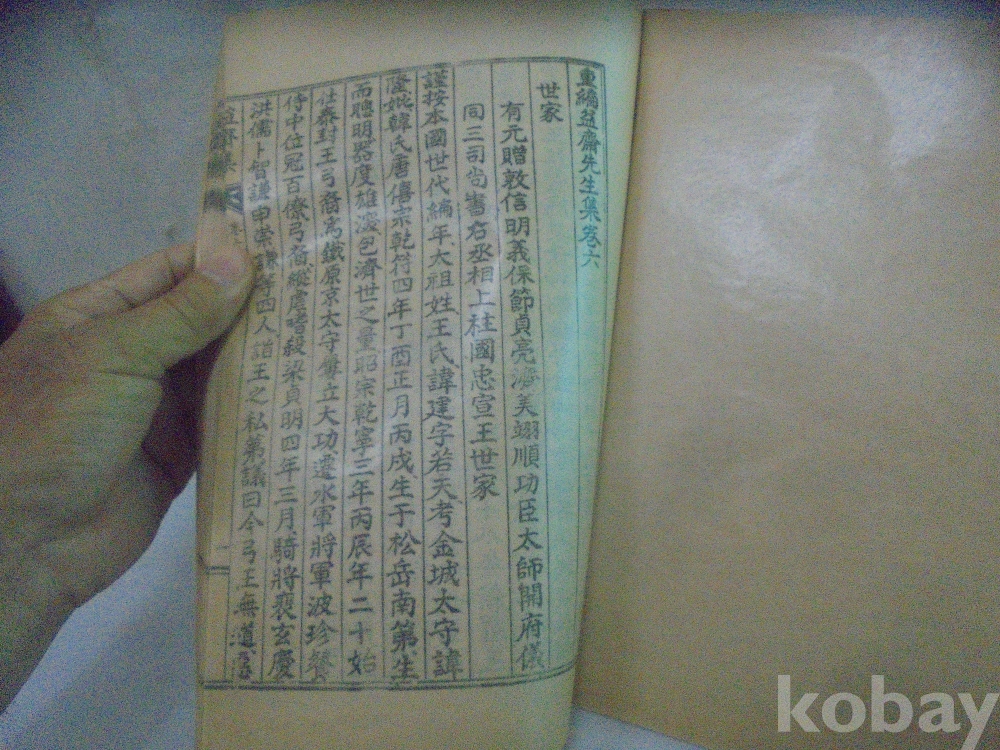 重編益齋先生集卷六
世家
有元贈敦信明義保節貞亮濟美翊順功臣太師開府儀
同三司尚書右丞相上柱國忠宣王世家
謹按本國世代編年太祖姓王氏諱建字若天考金城太守諱
隆妣韓氏唐僖宗乾符四年丁酉正月丙戌生于松岳南第生
而聰明器度雄深包濟世之量昭宗乾寧三年丙辰年二十始
仕泰封王弓裔爲鐵原京太守屢立大功遷水軍將軍波珍餐
侍中位冠百僚弓裔縱虐嗜殺梁貞明四年三月騎將裵玄慶
洪儒卜智謙申崇謙等四人詣王之私第議曰今弓王無道
益齋集 卷六
一
kobay